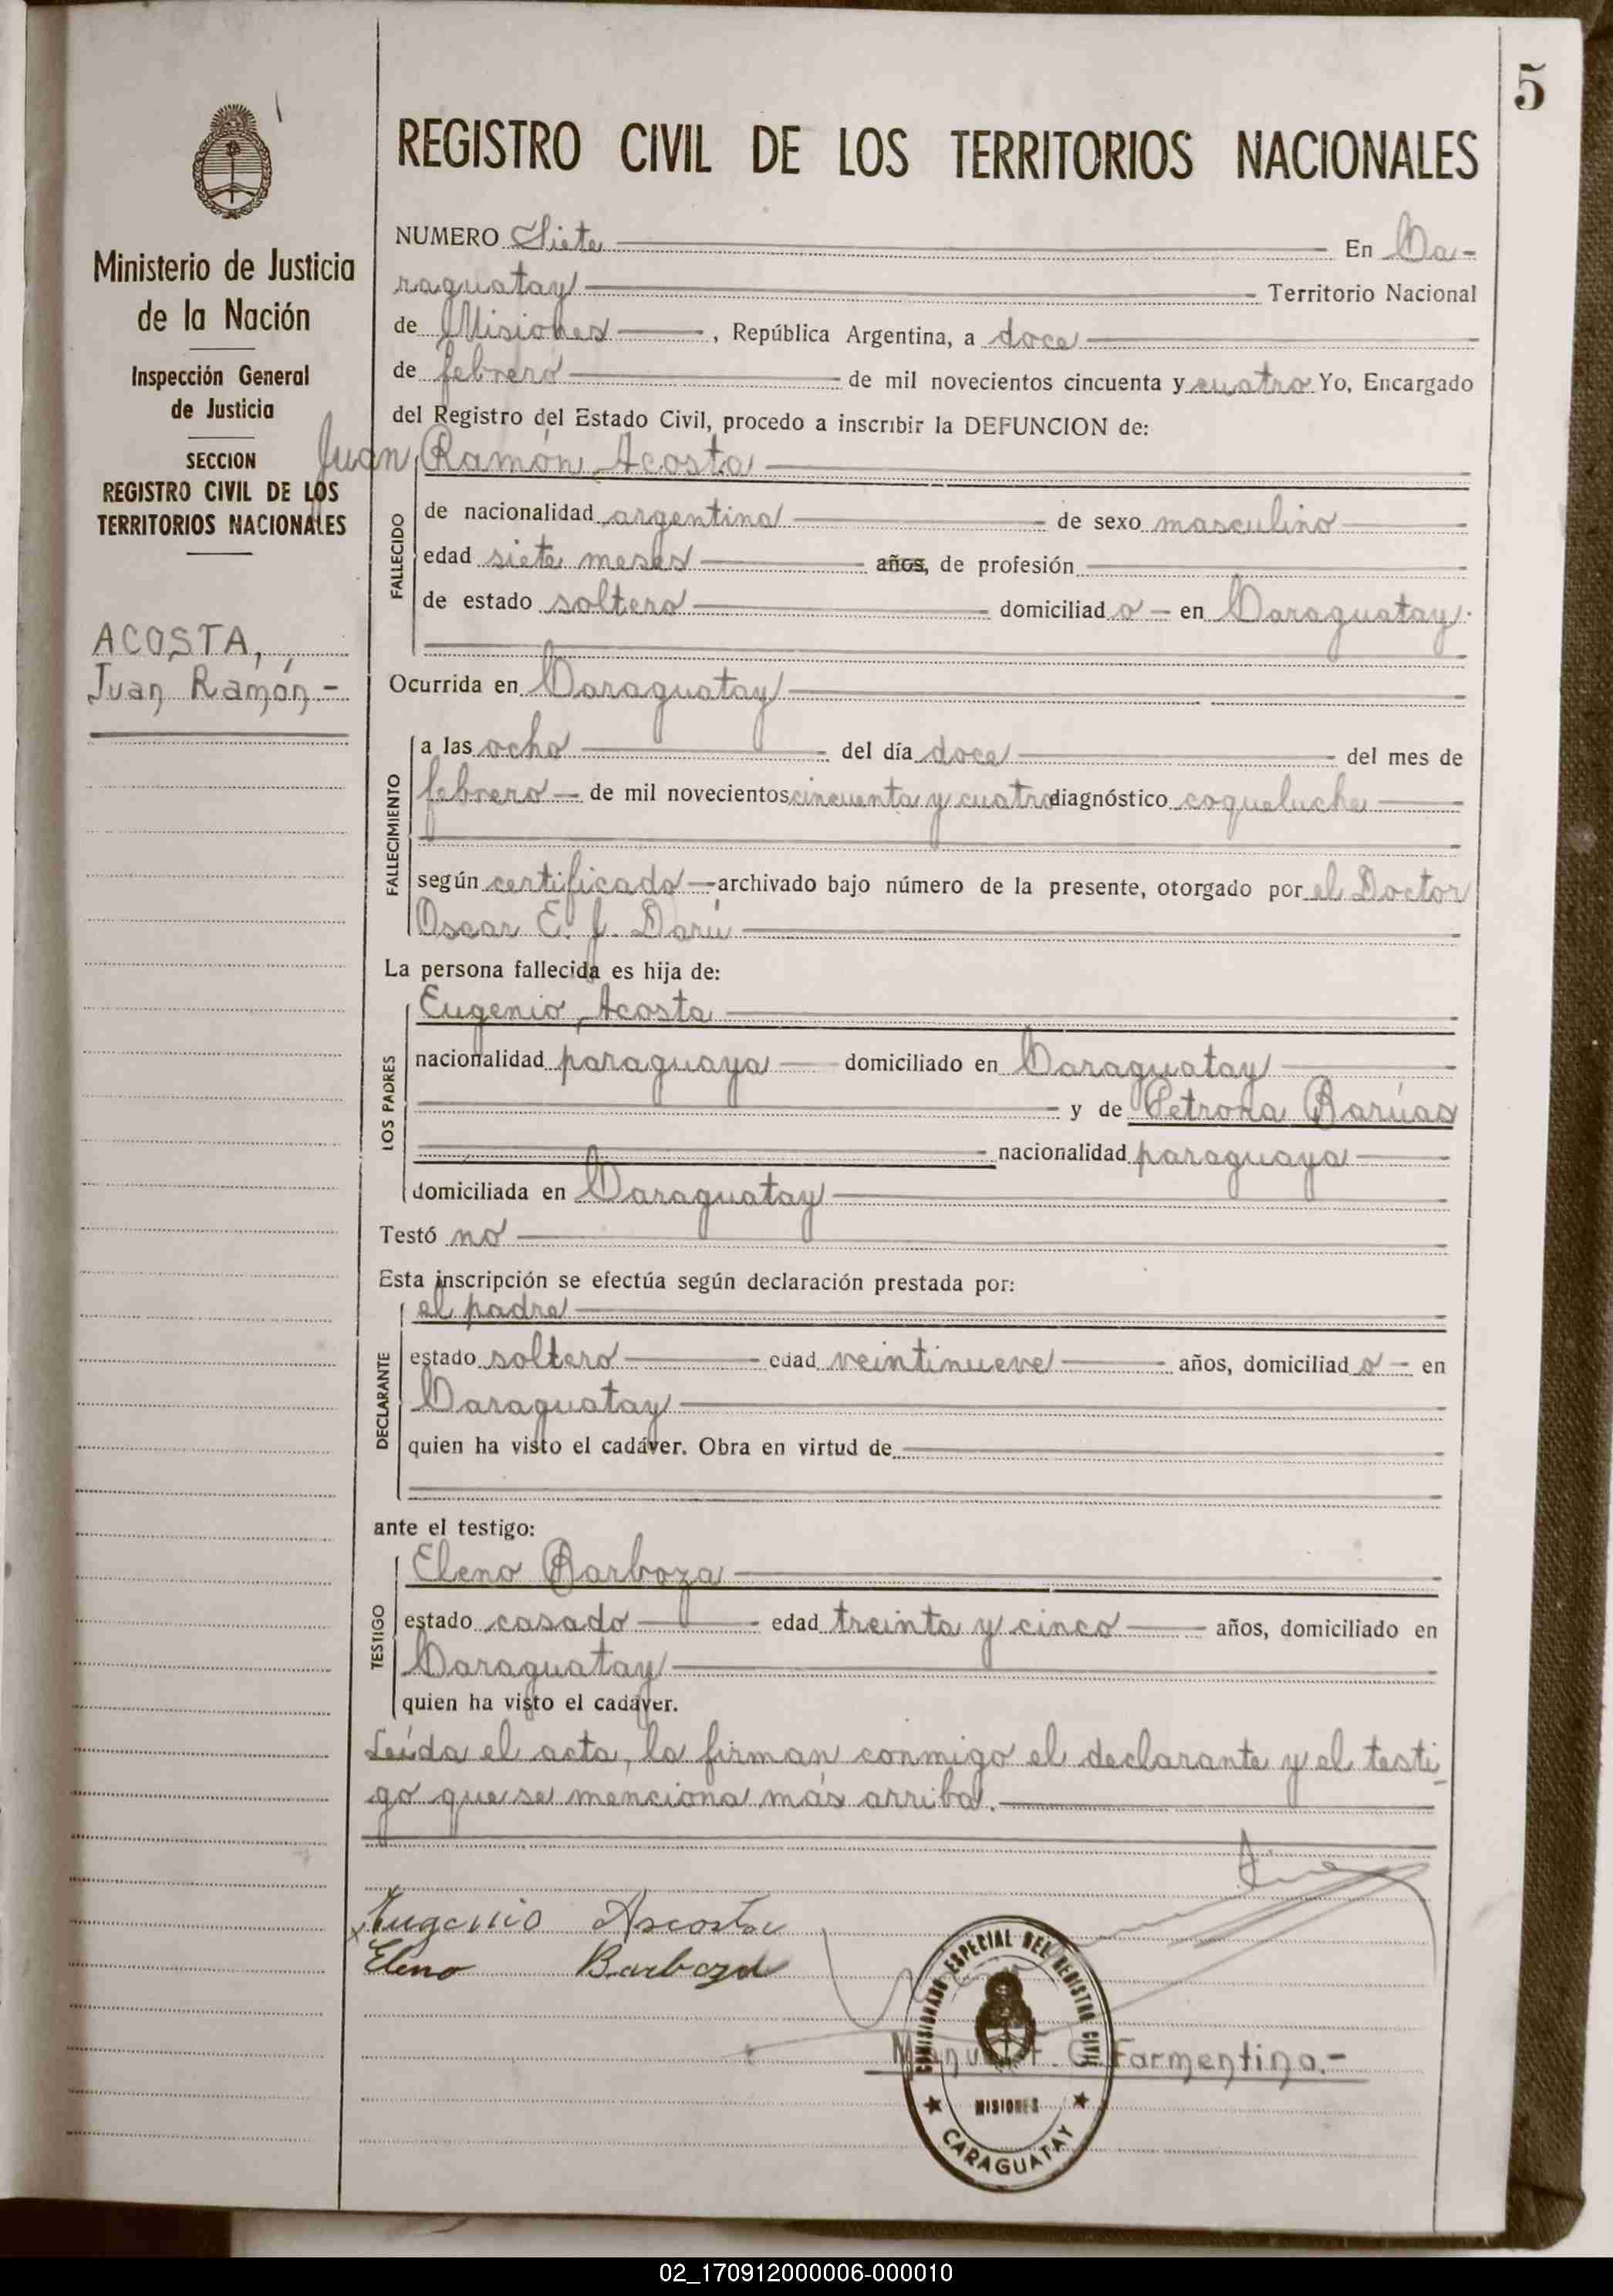 5
REGISTRO CIVIL DE LOS TERRITORIOS NACIONALES
Ministerio de Justicia
de la Nación
Inspección General
de Justicia
SECCION
REGISTRO CIVIL DE LOS
TERRITORIOS NACIONALES
ACOSTA,
Juan Ramón.-
NUMERO Siete En Ca-
raguatay Territorio Nacional
de Misiones, República Argentina, a doce
de febrero de mil novecientos cincuenta y cuatro Yo, Encargado
del Registro del Estado Civil, procedo a inscribir la DEFUNCION de:
Juan Ramón Acosta
FALLECIDO
de nacionalidad argentina de sexo masculino
edad siete meses años, de profesión
de estado soltero domiciliado - en Caraguatay.
Ocurrida en Caraguatay
FALLECIMIENTO
a las ocho del día doce del mes de
febrero de mil novecientos cincuenta y cuatro diagnóstico coqueluche
según certificado archivado bajo número de la presente, otorgado por el Doctor
Oscar E. J. Darú
La persona fallecida es hija de:
LOS PADRES
Eugenio Acosta
nacionalidad paraguaya domiciliado en Caraguatay
y de Petrona Barúas
nacionalidad paraguaya
domiciliada en Caraguatay
Testó no
Esta inscripción se efectúa según declaración prestada por:
DECLARANTE
el padre
estado soltero edad veintinueve años, domiciliado - en
Caraguatay
quien ha visto el cadáver. Obra en virtud de
ante el testigo:
TESTIGO
Eleno Barboza
estado casado edad treinta y cinco años, domiciliado en
Caraguatay
quien ha visto el cadáver.
Leída el acta, la firman conmigo el declarante y el testi-
go que se menciona más arriba.
Eugenio Ascosta
Eleno Barboza
COMISIONADO ESPECIAL DEL REGISTRO CIVIL
Manuel F. C. Farmentino.-
MISIONES
CARAGUATAY
02_170912000006-000010